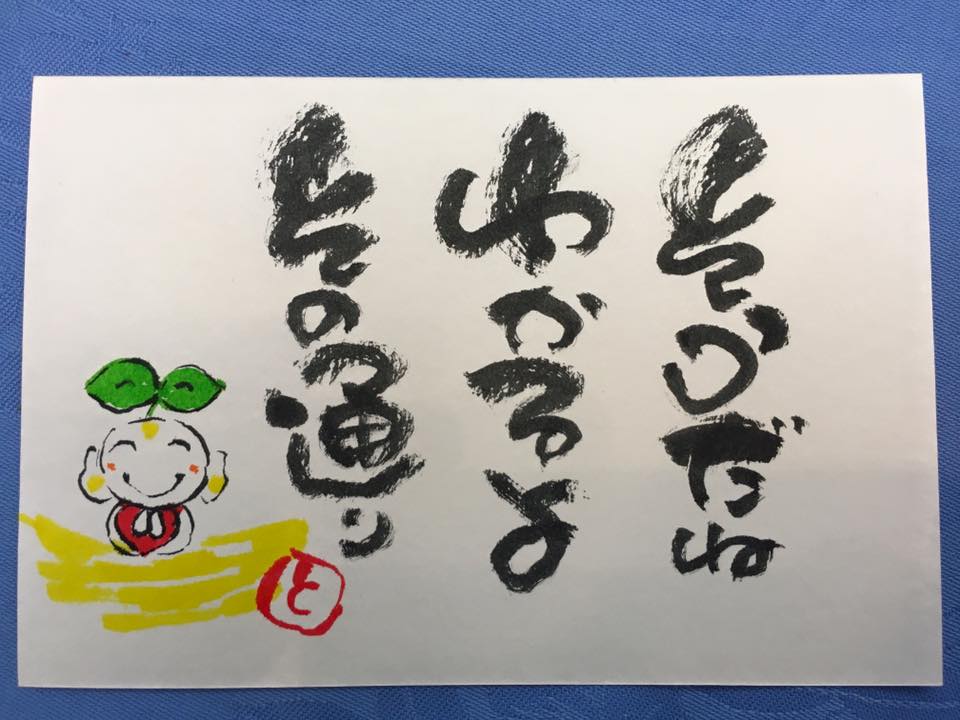 そうだね
わかるよ
その通り
と